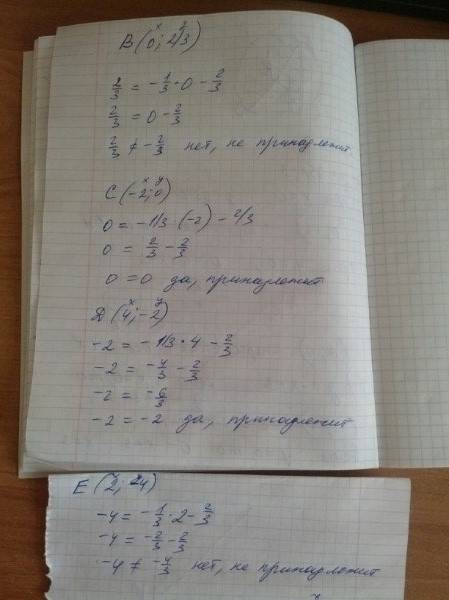 x y
B(0; 2/3)
2/3 = -1/3 · 0 - 2/3
2/3 = 0 - 2/3
2/3 ≠ -2/3 нет, не принадлежит
x y
C(-2; 0)
0 = -1/3 · (-2) - 2/3
0 = 2/3 - 2/3
0 = 0 да, принадлежит
x y
D(4; -2)
-2 = -1/3 · 4 - 2/3
-2 = -4/3 - 2/3
-2 = -6/3
-2 = -2 да, принадлежит
E(2; -4)
-4 = -1/3 · 2 - 2/3
-4 = -2/3 - 2/3
-4 ≠ -4/3 нет, не принадлежит